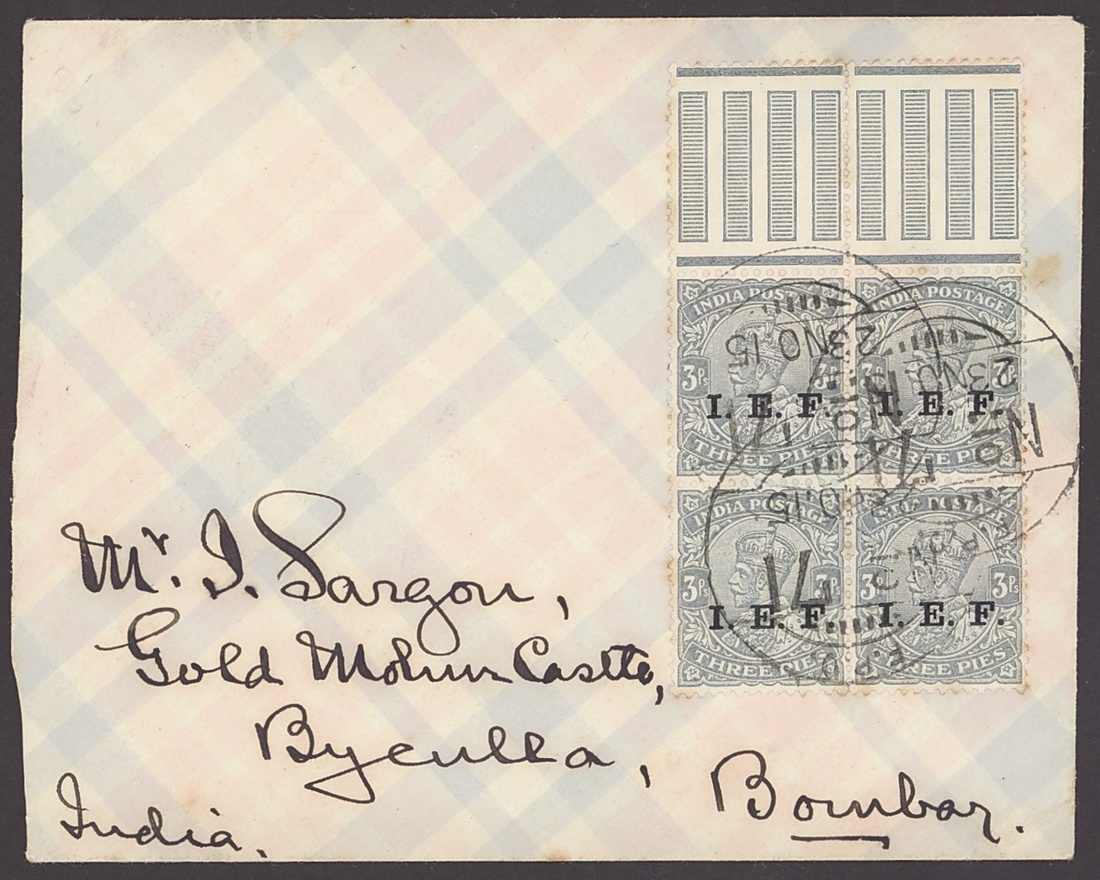 INDIA POSTAGE INDIA POSTAGE
23 NO. 15
23 NO. 15
3Ps 3Ps
I. E. F. I. E. F.
THREE PIES THREE PIES
No
INDIA POSTAGE POSTAGE
3Ps 3Ps
71
I. E. F. I. E. F.
THREE PIES THREE PIES
F.P.O.
Mr. I. Sargon,
Gold Mohur Castle,
Byculla,
Bombay.
India.